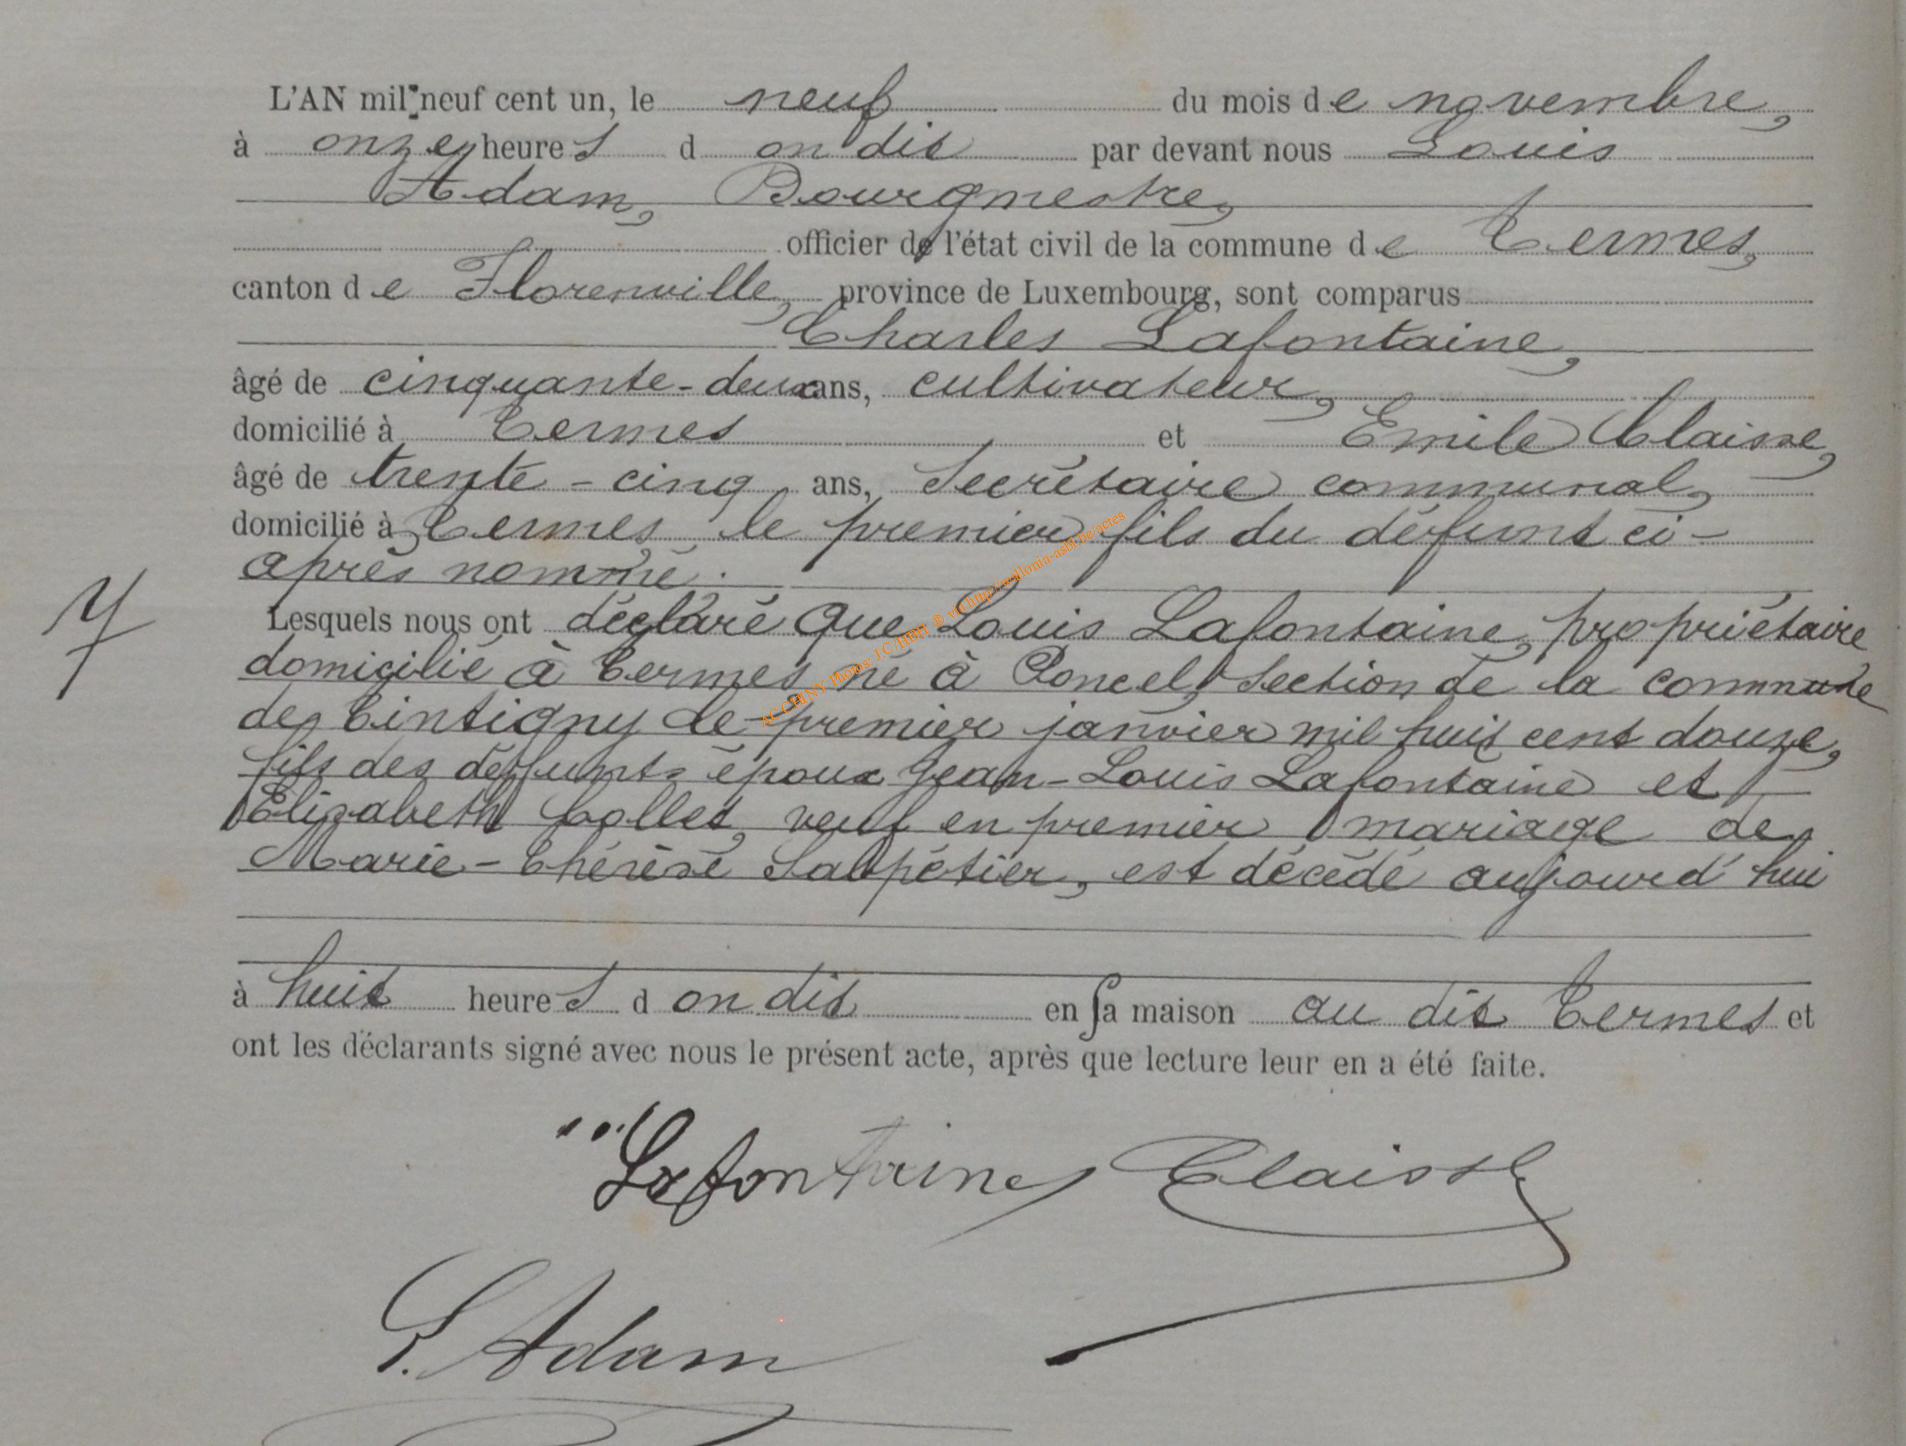 L'AN mil neuf cent un, le neuf du mois de novembre,
à onze heures d on dit par devant nous Louis
Adam, Bourgmestre,
officier de l'état civil de la commune de Termes,
canton de Florenville, province de Luxembourg, sont comparus
Charles Lafontaine,
âgé de cinquante-deux ans, cultivateur,
domicilié à Termes et Emile Claisse,
âgé de trente-cinq ans, Secrétaire communal,
domicilié à Termes le premier fils du défunt ci-
après nommé.
7
Lesquels nous ont déclaré que Louis Lafontaine, propriétaire
domicilié à Termes, né à Poncel, Section de la commune
de Tintigny le premier janvier mil huit cent douze,
fils des défunts époux Jean-Louis Lafontaine et
Elizabeth Collet, veuf en premier mariage de
Marie-Thérèse Salpétier, est décédé aujourd'hui
à huit heures d on dit en sa maison au dit Termes et
ont les déclarants signé avec nous le présent acte, après que lecture leur en a été faite.
Lafontaine Claisse
L. Adam